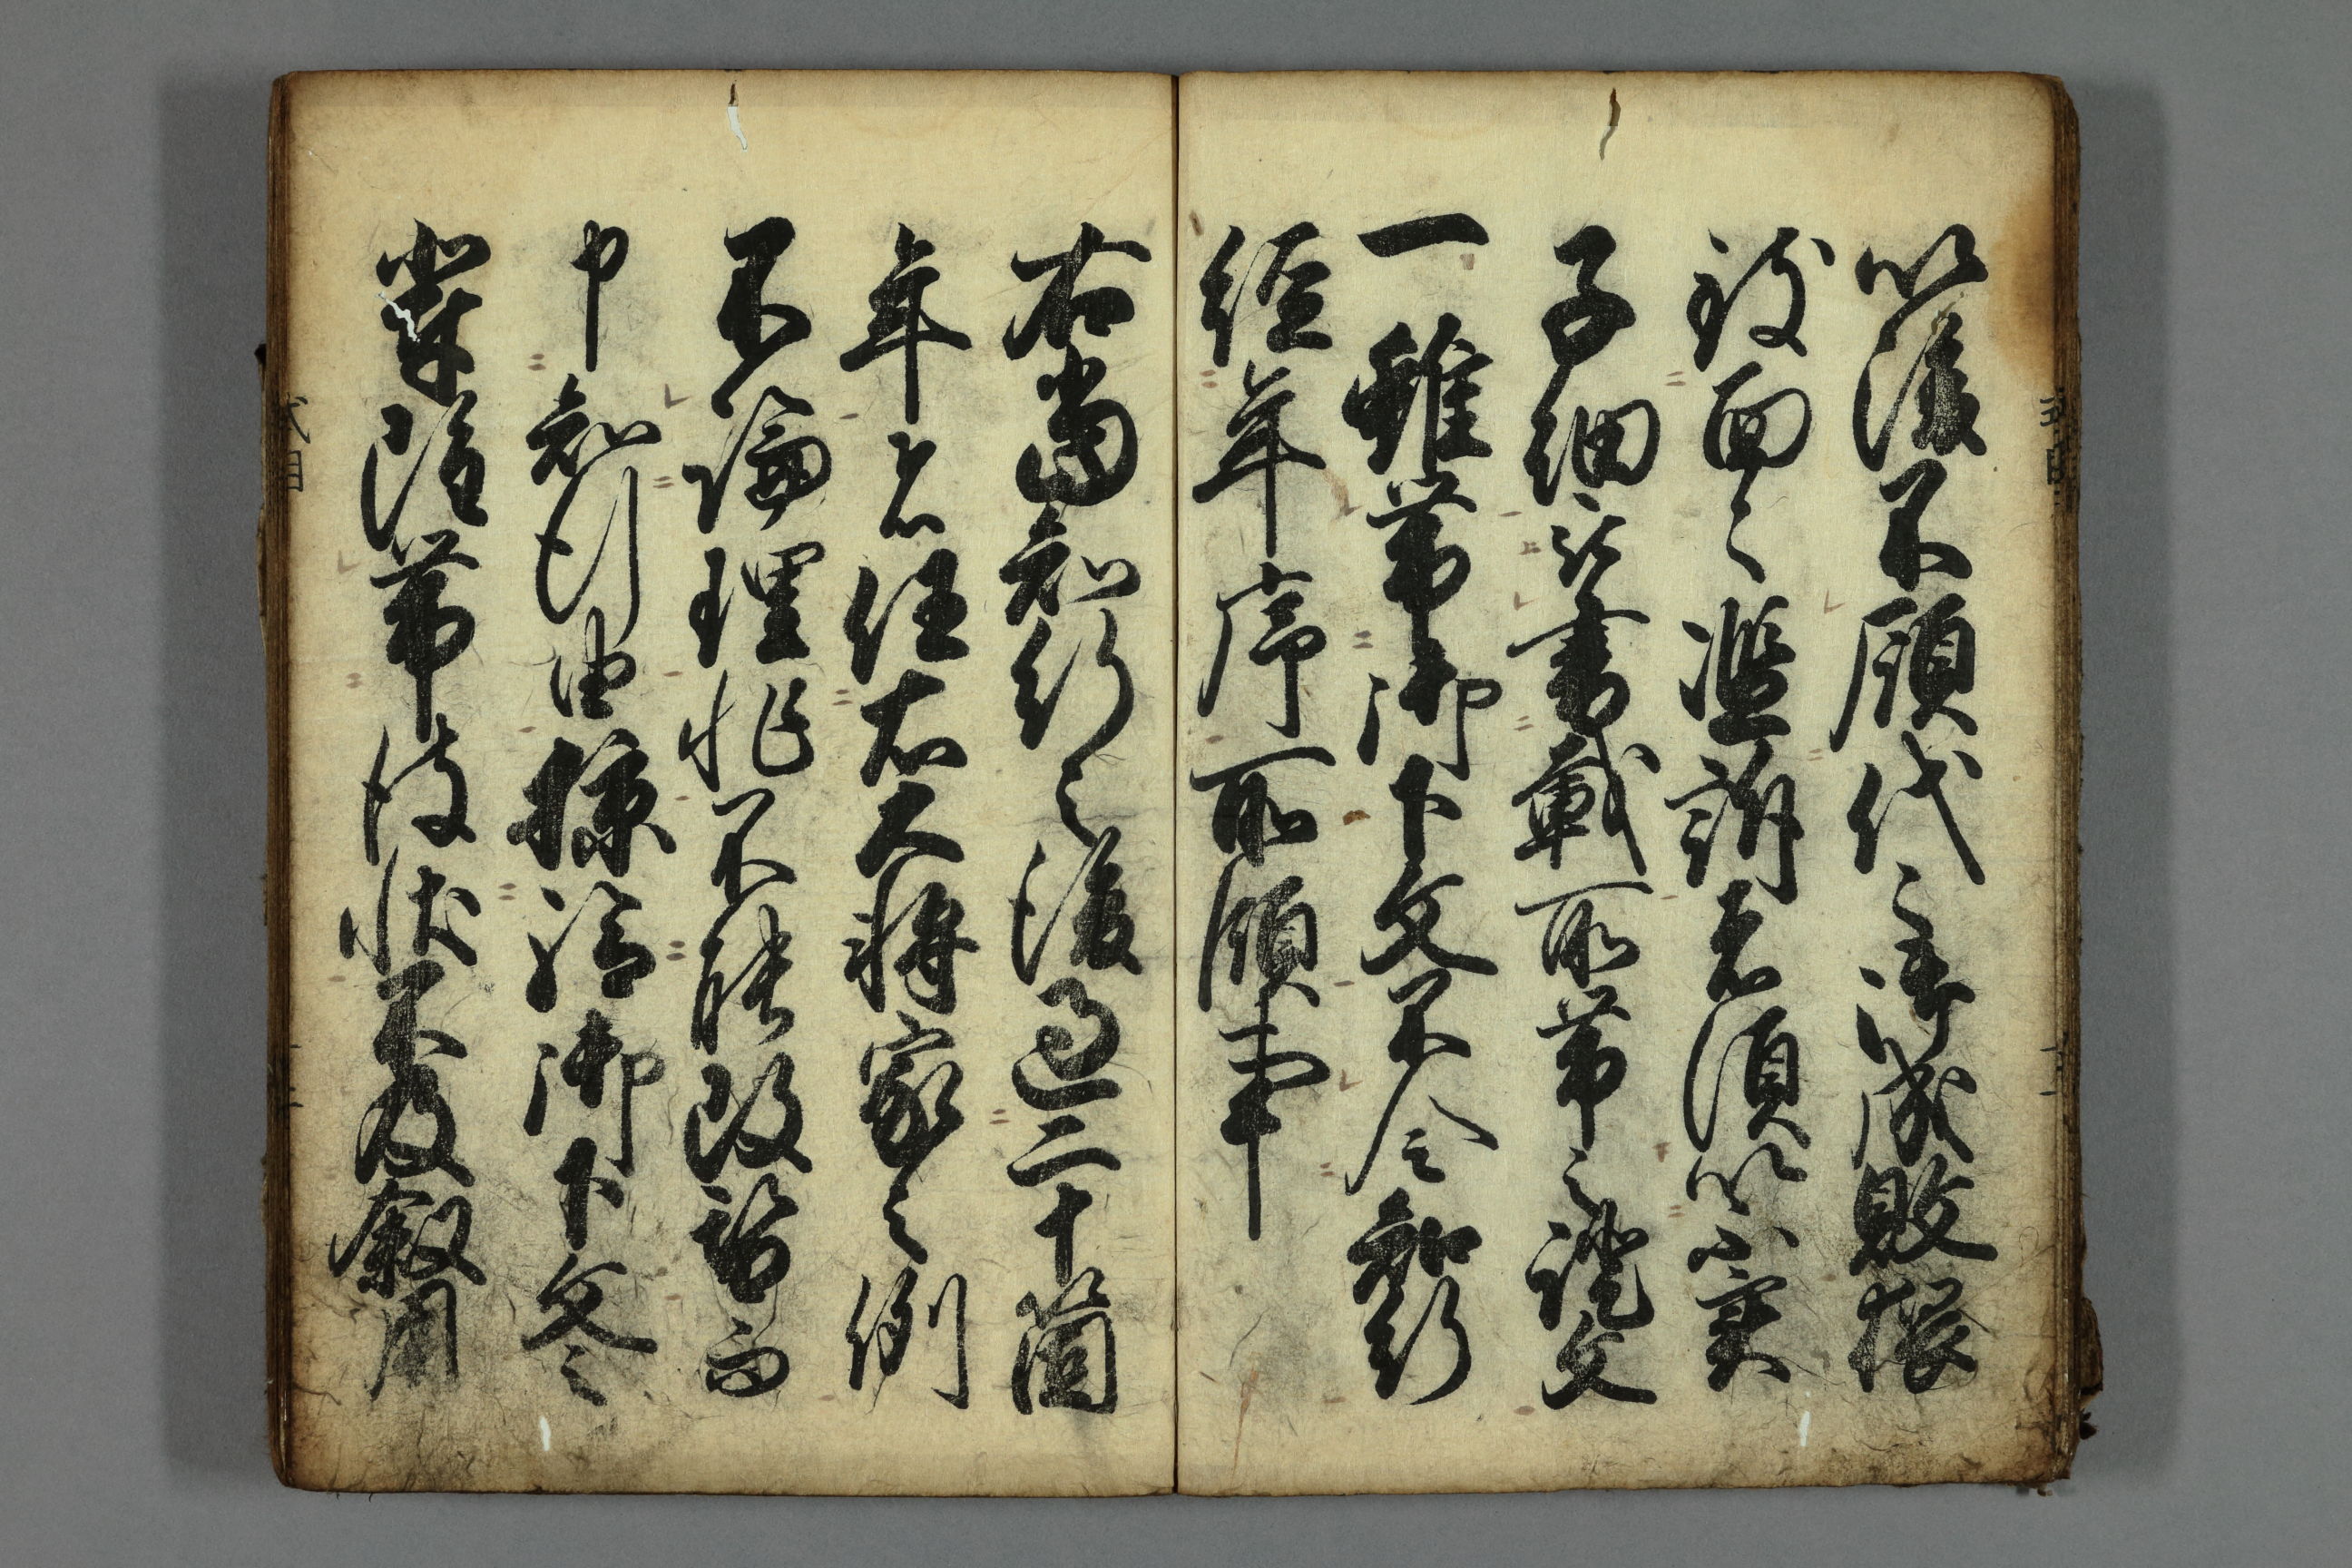 以後不顧代々御成敗猥
致面々濫訴者須以不実
子細被書載所帯之證文
一雖帯御下文不令知行
經年序所領事
右當知行之後過二十箇
年者任右大将家之例
不論理非不能改替而
申知行由掠給御下文之
輩雖帯彼状不及叙用